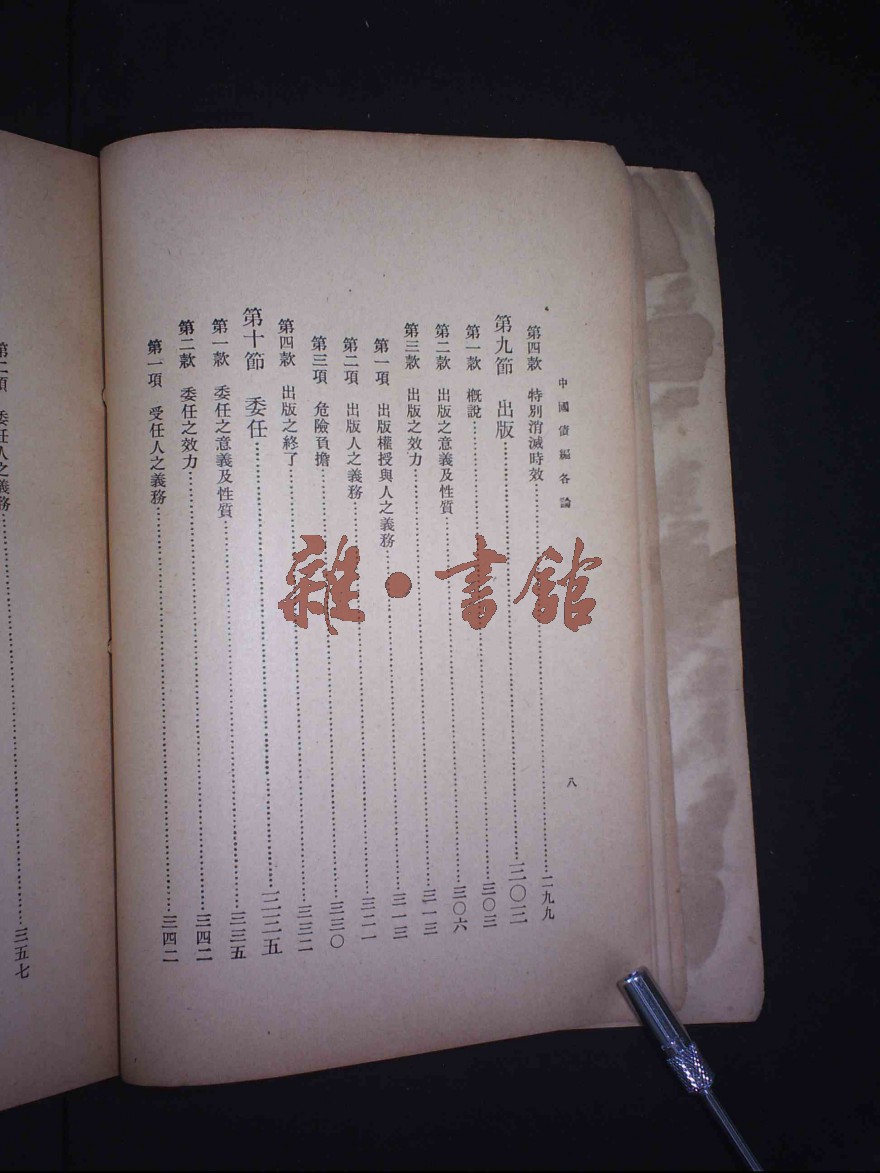 中國債編各論
八
第四款 特別消滅時效……二九九
第九節 出版……三〇三
第一款 概說……三〇三
第二款 出版之意義及性質……三〇六
第三款 出版之效力……三一三
第一項 出版權授與人之義務……三一三
第二項 出版人之義務……三二一
第三項 危險負擔……三三〇
第四款 出版之終了……三三二
第十節 委任……三三五
第一款 委任之意義及性質……三三五
第二款 委任之效力……三四二
第一項 受任人之義務……三四二
第二項 委任人之義務……三五七
雜·書館